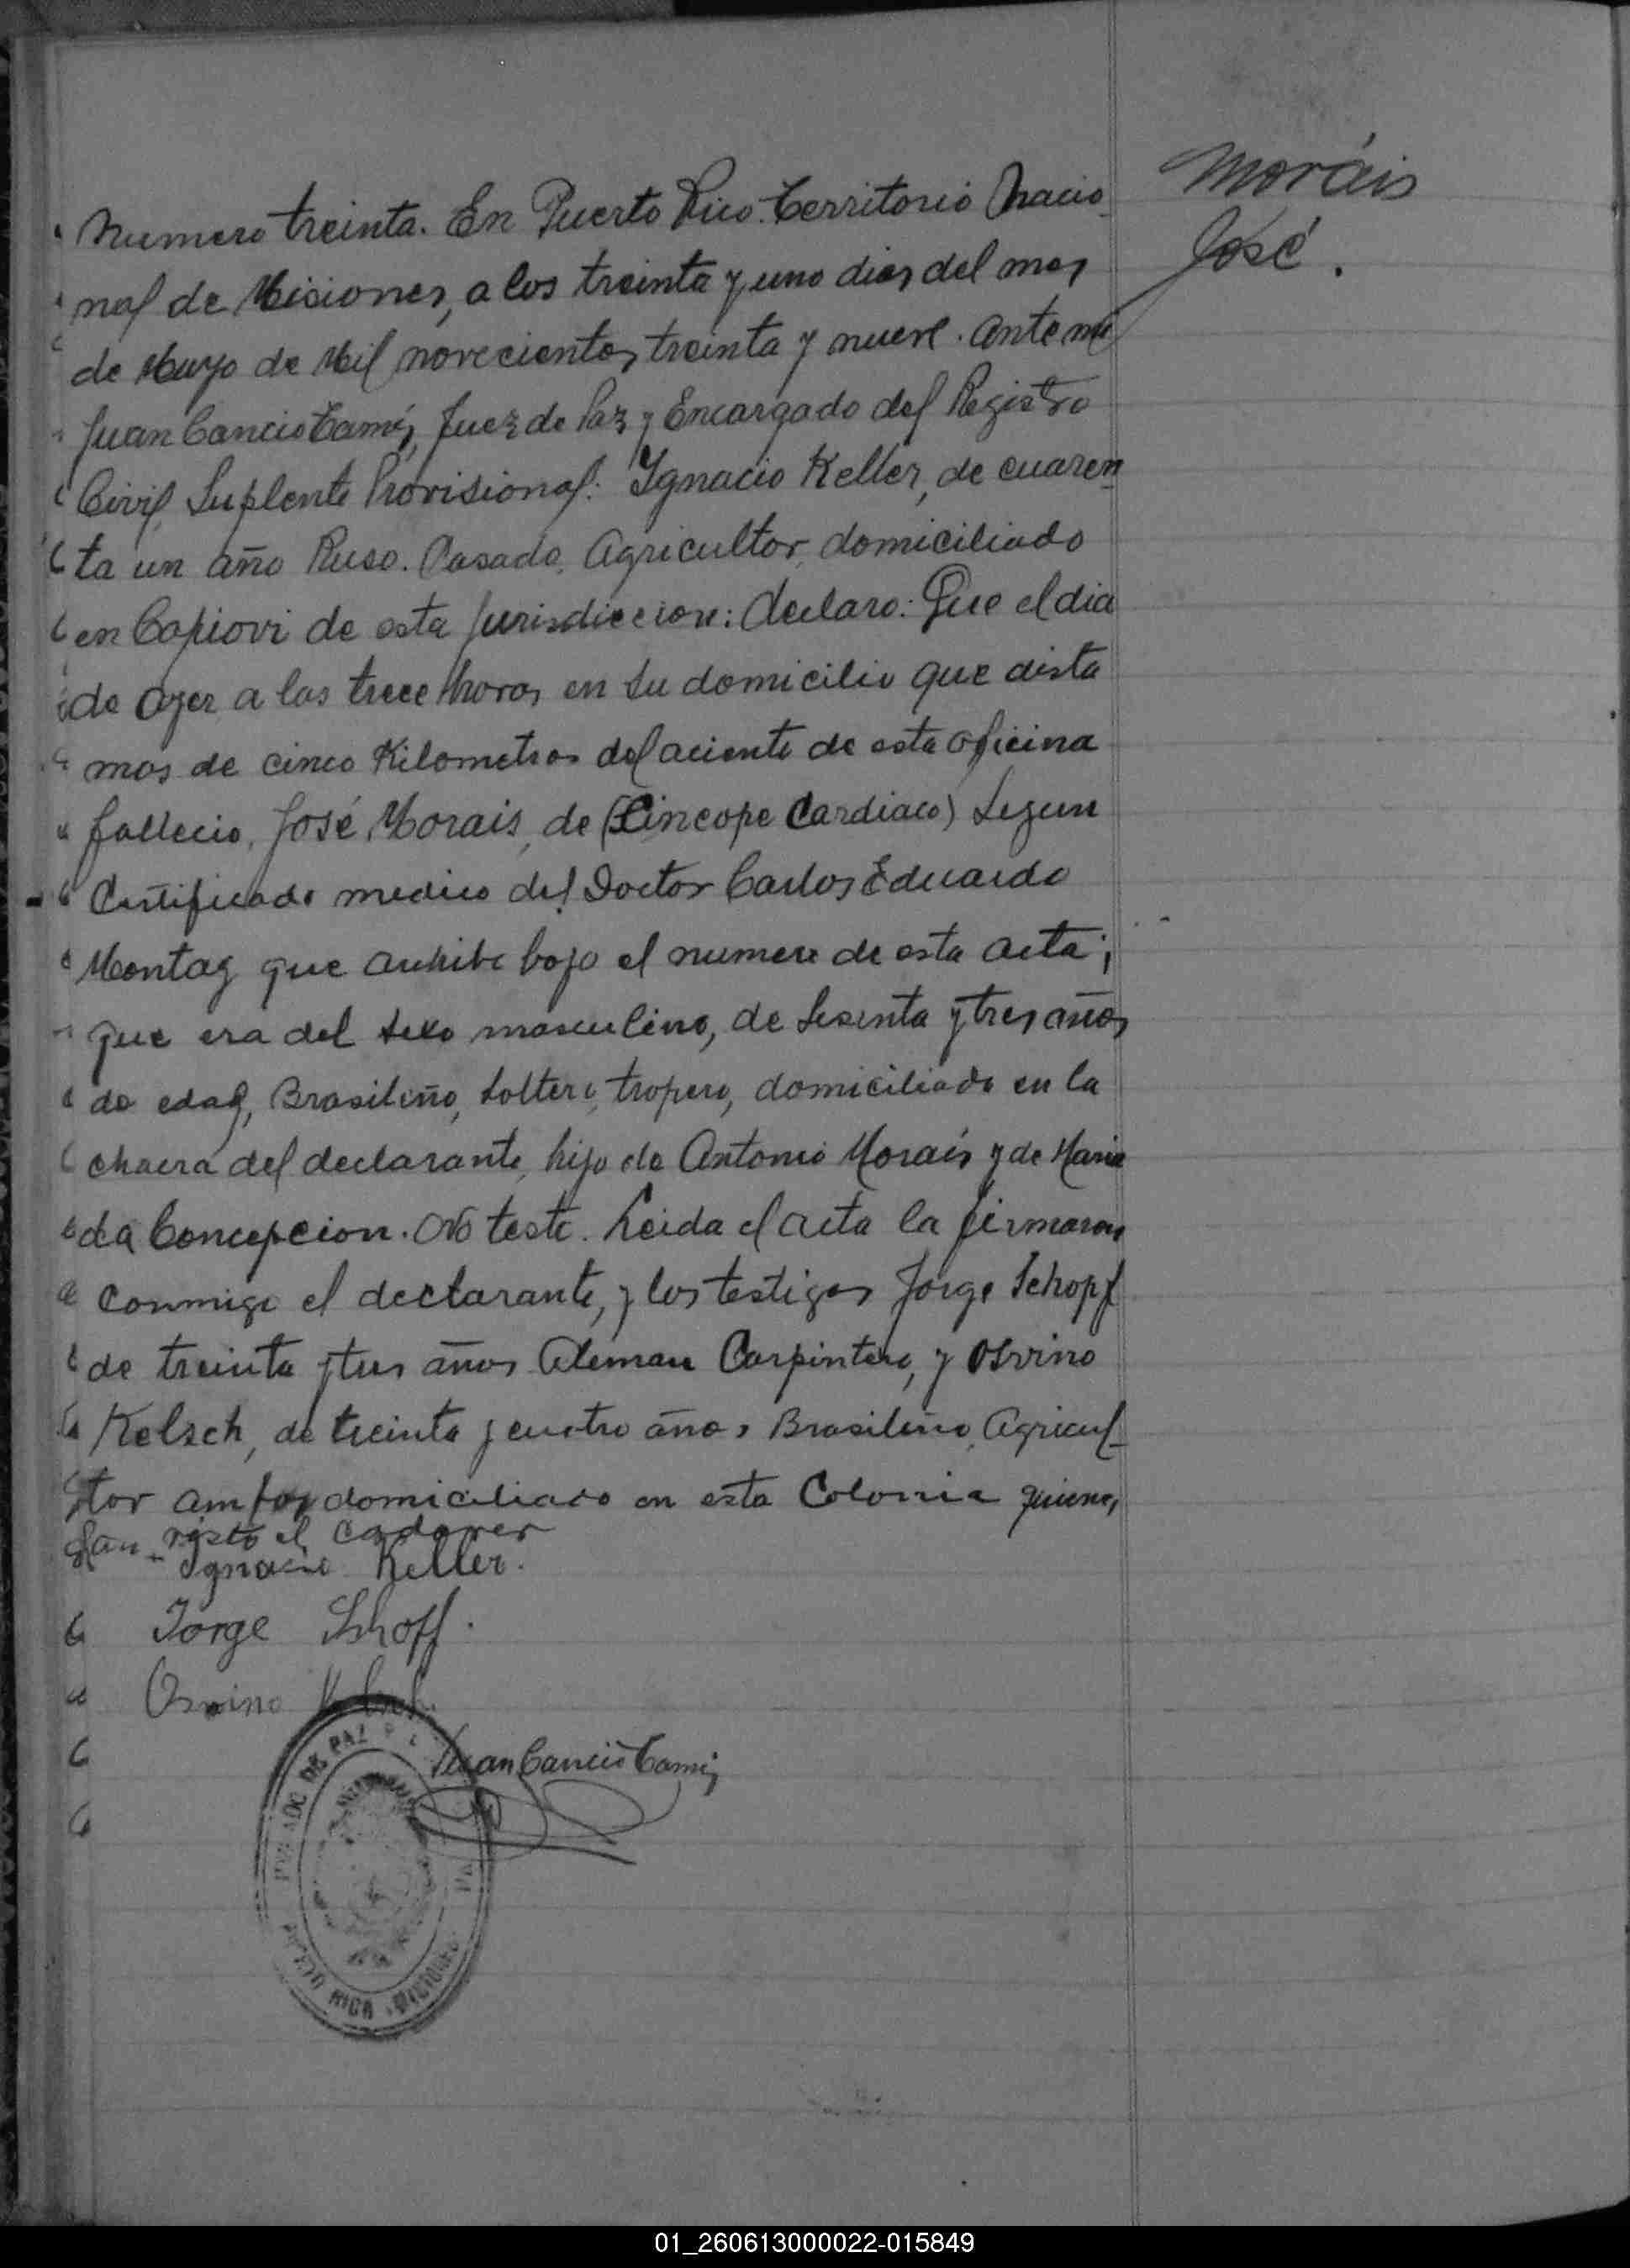 Moráis
José.
Numero treinta. En Puerto Rico. Territorio Nacio-
nal de Misiones, a los treinta y uno dias del mes
de Mayo de Mil novecientos treinta y nueve. Ante mi
Juan Cancio Camis, Juez de Paz y Encargado del Registro
Civil, Suplente Provisional: Ignacio Keller, de cuaren-
ta un año Ruso. Casado, Agricultor, domiciliado
en Capiovi de esta Jurisdiccion; declaro: Que el dia
de ayer a las trece horas en su domicilio que dista
mas de cinco Kilometros del aciento de esta oficina
fallecio, José, Morais, de (Sincope Cardiaco) Segun
Certificado medico del Doctor Carlos Eduardo
Montag que bajo el numero de esta acta;
que era del sexo masculino, de sesenta y tres años
de edad, Brasileño, soltero, tropero, domiciliado en la
chacra del declarante, hijo de Antonio Morais y de Maria
da Concepcion. No testo. Leida el acta la firmaron
conmigo el declarante, y los testigos Jorge Schopf
de treinta y tres años Aleman Carpintero, y Osvino
Kelsch, de treinta y cuatro años Brasileño, Agricul-
tor ambos domiciliado en esta Colonia quienes
han visto el cadaver
Ignacio Keller.
Jorge Schoff.
Osvino Kelsch.
Juan Cancio Camis
JUZGADO DE PAZ
PUERTO RICO MISIONES
01_260613000022-015849